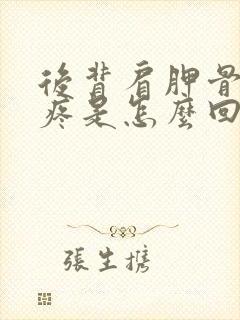 後背肩胛骨
疼是怎麼回
張生携